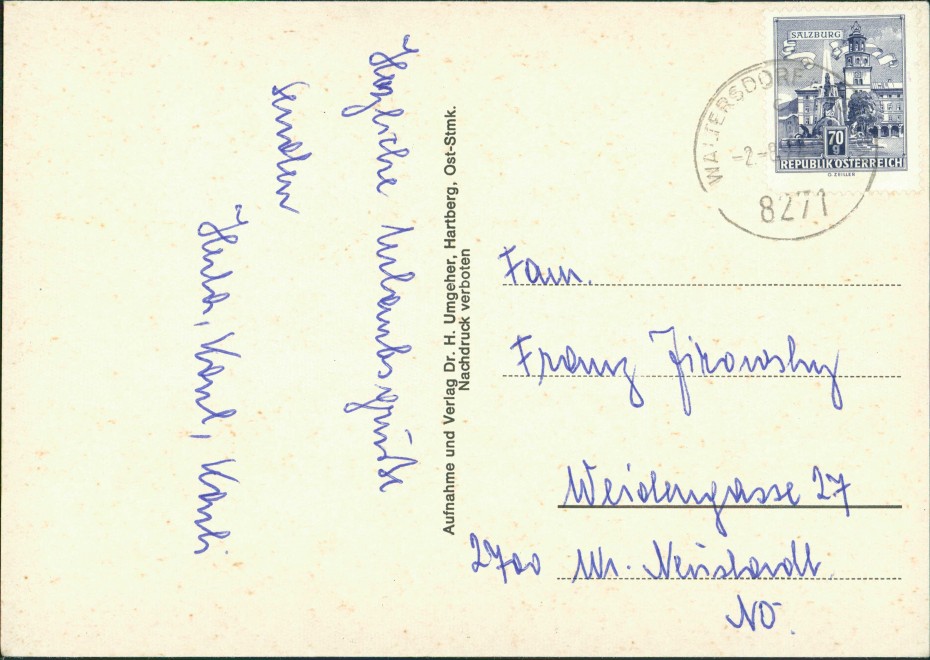 Herzliche Urlaubsgrüße
senden
Herta, Karl, Karli
Aufnahme und Verlag Dr. H. Umgeher, Hartberg, Ost-Stmk.
Nachdruck verboten
SALZBURG
70
g
REPUBLIK ÖSTERREICH
O. ZEILLER
WALTERSDORF
-2.-8
8271
Fam.
Franz Jirowsky
Weidengasse 27
2700 Wr. Neustadt
NÖ.